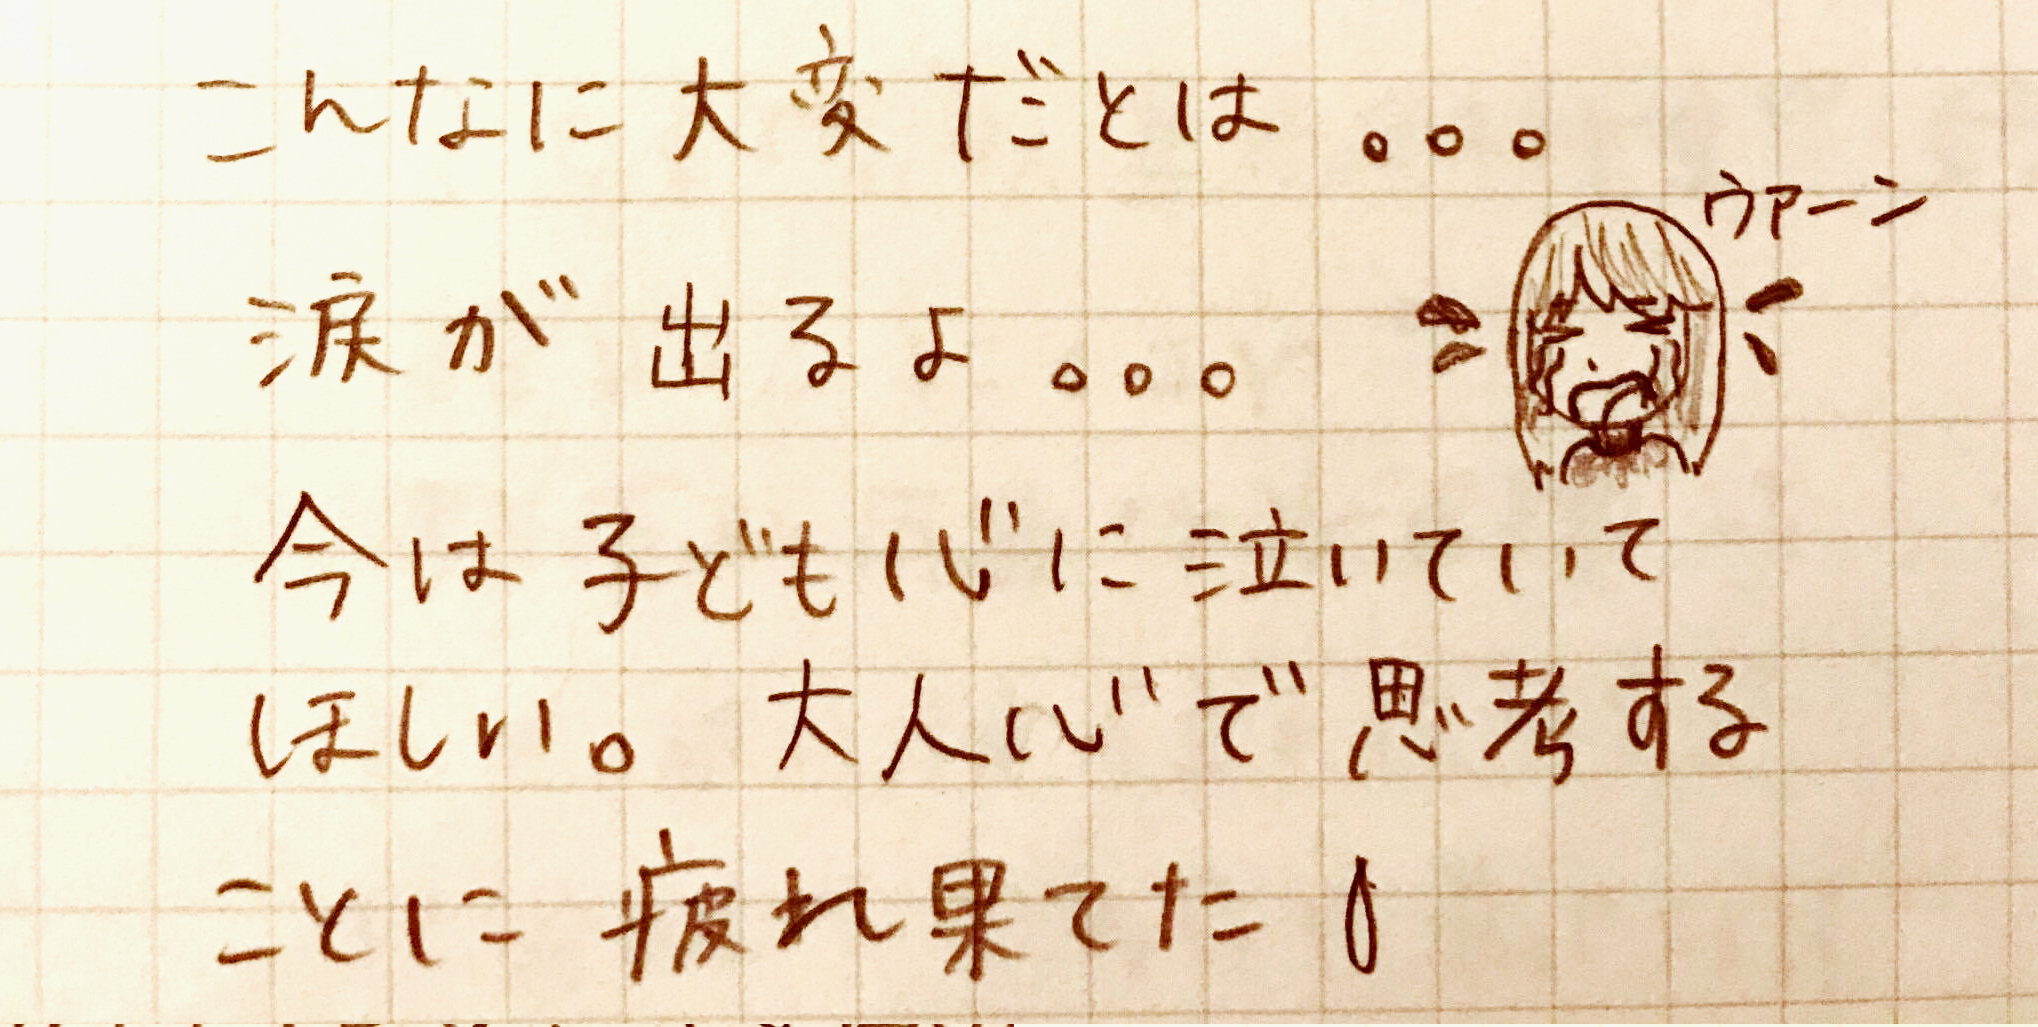 こんなに大変だとは。。。
ウァーン
涙が出るよ。。。
今は子ども心に泣いていて
ほしい。大人心で思考する
ことに疲れ果てた